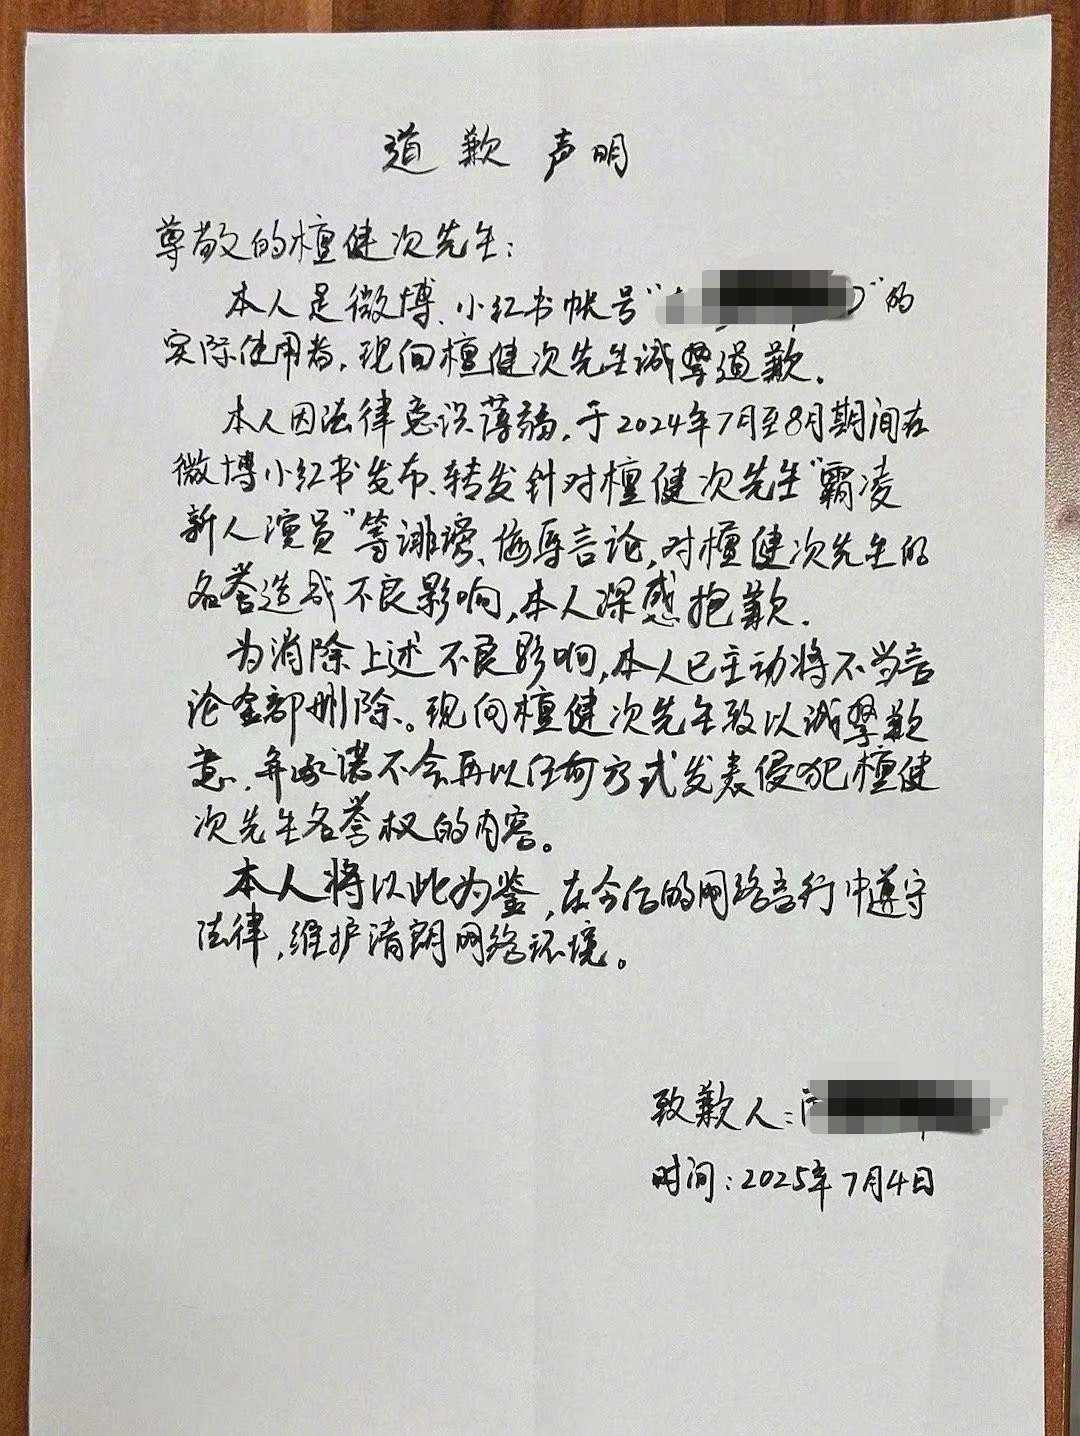 道歉声明
尊敬的檀健次先生：
本人是微博、小红书帐号“”的
实际使用者，现向檀健次先生诚挚道歉。
本人因法律意识薄弱，于2024年7月至8月期间在
微博小红书发布、转发针对檀健次先生“霸凌
新人演员”等诽谤、侮辱言论，对檀健次先生的
名誉造成不良影响，本人深感抱歉。
为消除上述不良影响，本人已主动将不当言
论全部删除。现向檀健次先生致以诚挚歉
意，并承诺不会再以任何方式发表侵犯檀健
次先生名誉权的内容。
本人将以此为鉴，在今后的网络言行中遵守
法律，维护清朗网络环境。
致歉人：
时间：2025年7月4日